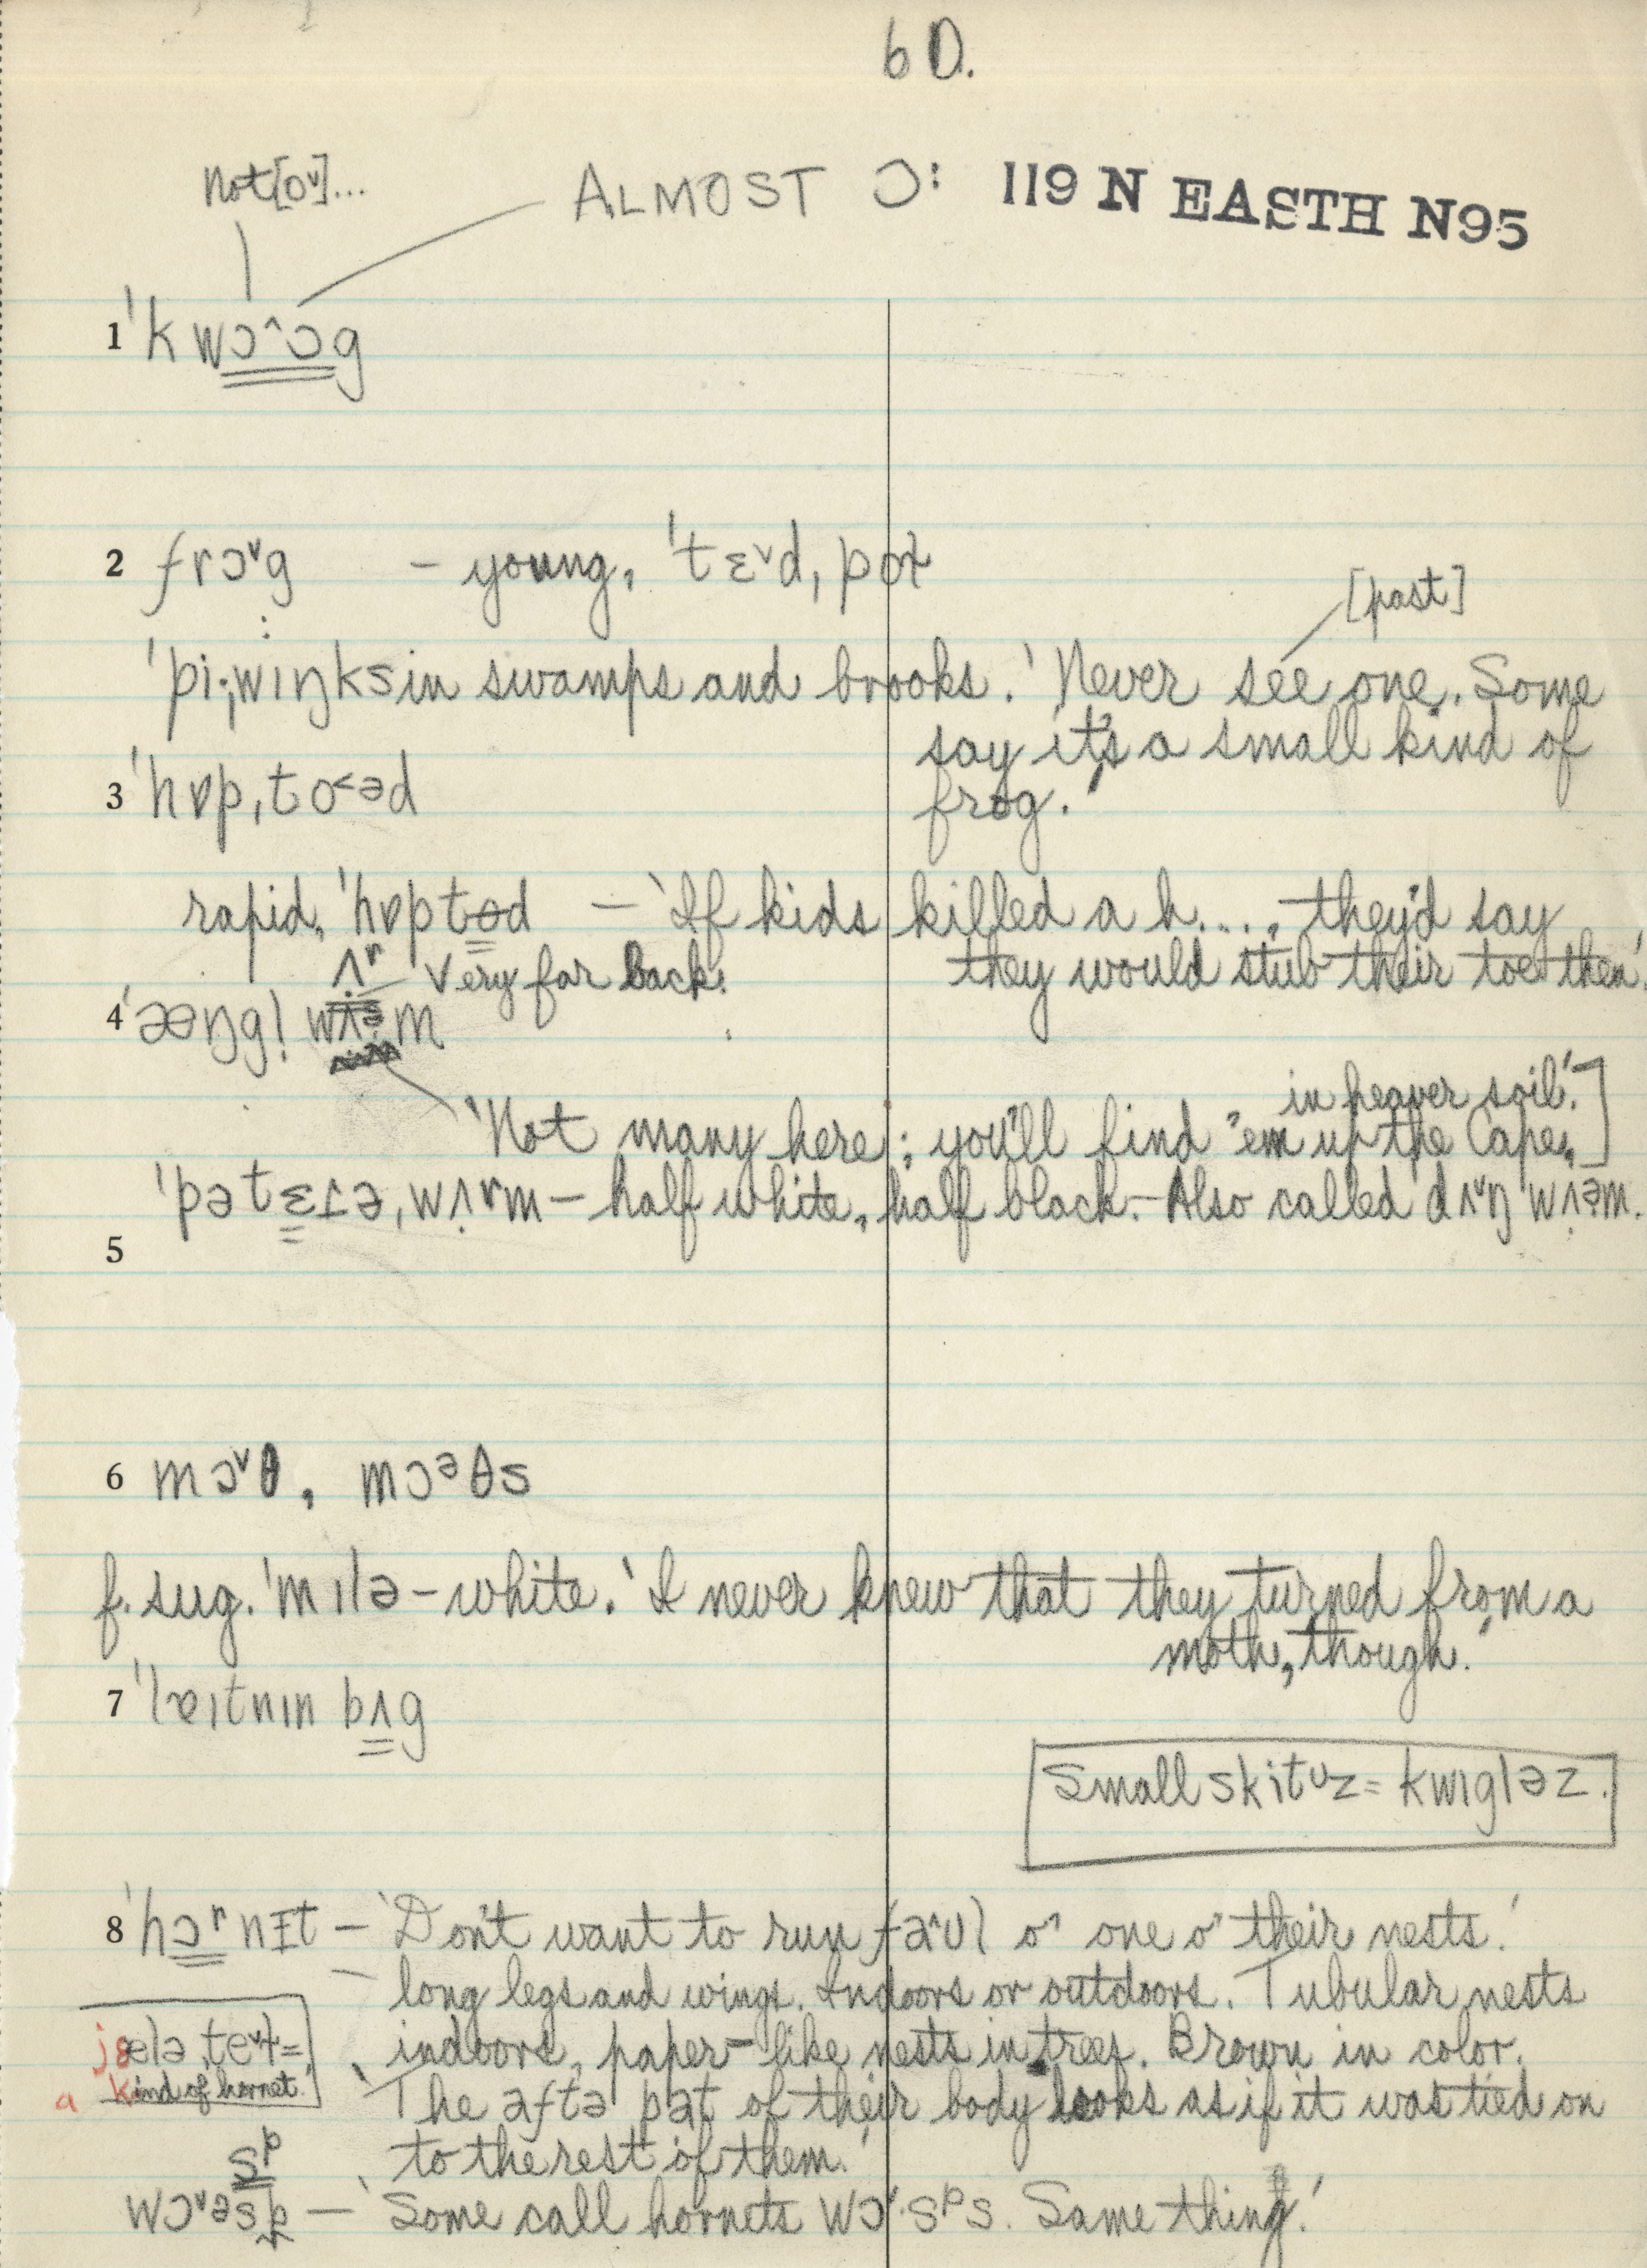 6 D.
Not [ɒ˅]...
ALMOST ɔ: 119 N EASTH N95
1 'kwɔ^ɔg
2 frɔ˅g – young, 'tɛ˅d,pɒt
[past]
'pi·,wɪŋks in swamps and brooks. 'Never see one. Some
say it's a small kind of
frog.'
3 'hɒp,to<əd
rapid, 'hɒptɵd – 'If kids killed a h...., they'd say
they would stub their toe then.'
ʌʳ Very far back.
4 'æŋgl̩ wʌ̣əm
in heavier soil.']
'Not many here; you'll find 'em up the Cape,
'pətɛɪə,wʌ̣ʳm – half white, half black. – Also called 'dʌ˅ŋ wʌ̣əm.
5
6 mɔ˅θ, mɔᵊθs
f. sug. 'mɪlə – white. 'I never knew that they turned from a
moth, though.'
7 'lɐɪtnɪn bʌg
Small skitᶷz = kwɪgləz.
8 'hɔʳnɪt – 'Don't want to run fa^ʊl o' one o' their nests.'
long legs and wings. Indoors or outdoors. Tubular nests
jɛlə,te˅t = indoors, paper-like nests in trees. Brown in color.
a kind of hornet. 'The aftə pat of their body looks as if it was tied on
sᵖ to the rest of them.'
wɔ˅əsp – 'Some call hornets wɔ˅·sᵖs. Same thing.'